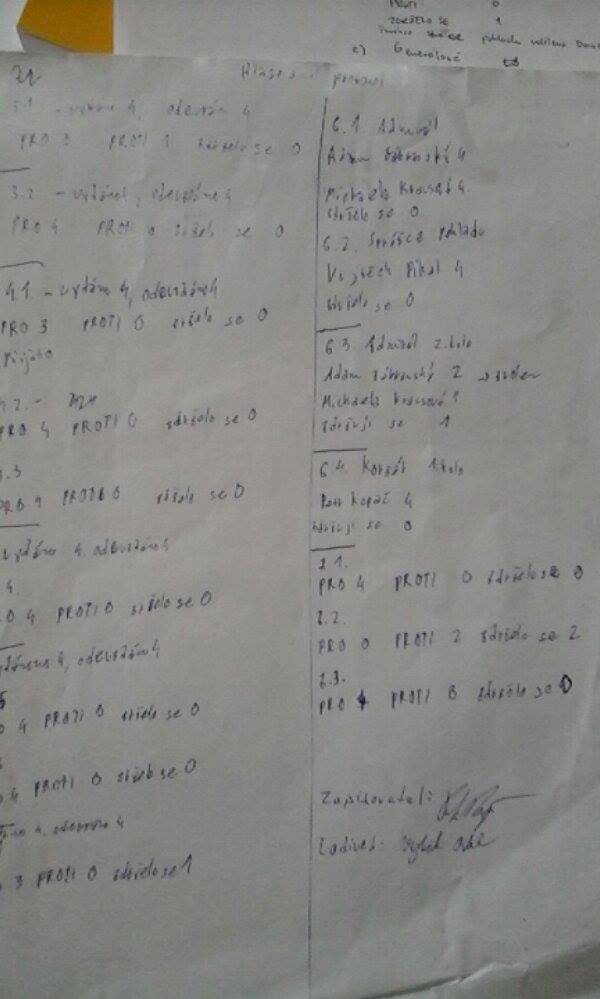 PROTI 0
ZDRŽELO SE 1
c) Generálové
Hlasovací protokol
3.1. - vydáno 4, odevzdáno 4
PRO 3 PROTI 1 zdrželo se 0
3.2. - vydáno 4, odevzdáno 4
PRO 4 PROTI 0 zdrželo se 0
4.1. - vydáno 4, odevzdáno 4
PRO 3 PROTI 0 zdrželo se 0
Přijato
4.2. -
PRO 4 PROTI 0 zdrželo se 0
.3
PRO 4 PROTI 0 zdrželo se 0
vydáno 4, odevzdáno 4
4.
O 4 PROTI 0 zdrželo se 0
odevzdáno 4
5
4 PROTI 0 zdrželo se 0
4 PROTI 0 zdrželo se 0
4, odevzdáno 4
3 PROTI 0 zdrželo se 1
6.1. Admirál
Adam Zábranský 4
Michaela Krausová 4
zdrželo se 0
6.2. Správce pokladu
Vojtěch Pikal 4
zdrželo se 0
6.3. Admirál 2. kolo
Adam Zábranský 2 zvolen
Michaela Krausová 1
zdržují se 1
6.4. Korzár 1. kolo
Petr Kopáč 4
zdržují se 0
2.1.
PRO 4 PROTI 0 zdrželo se 0
2.2.
PRO 0 PROTI 2 zdrželo se 2
2.3.
PRO 4 PROTI 0 zdrželo se 0
Zapisovatel: